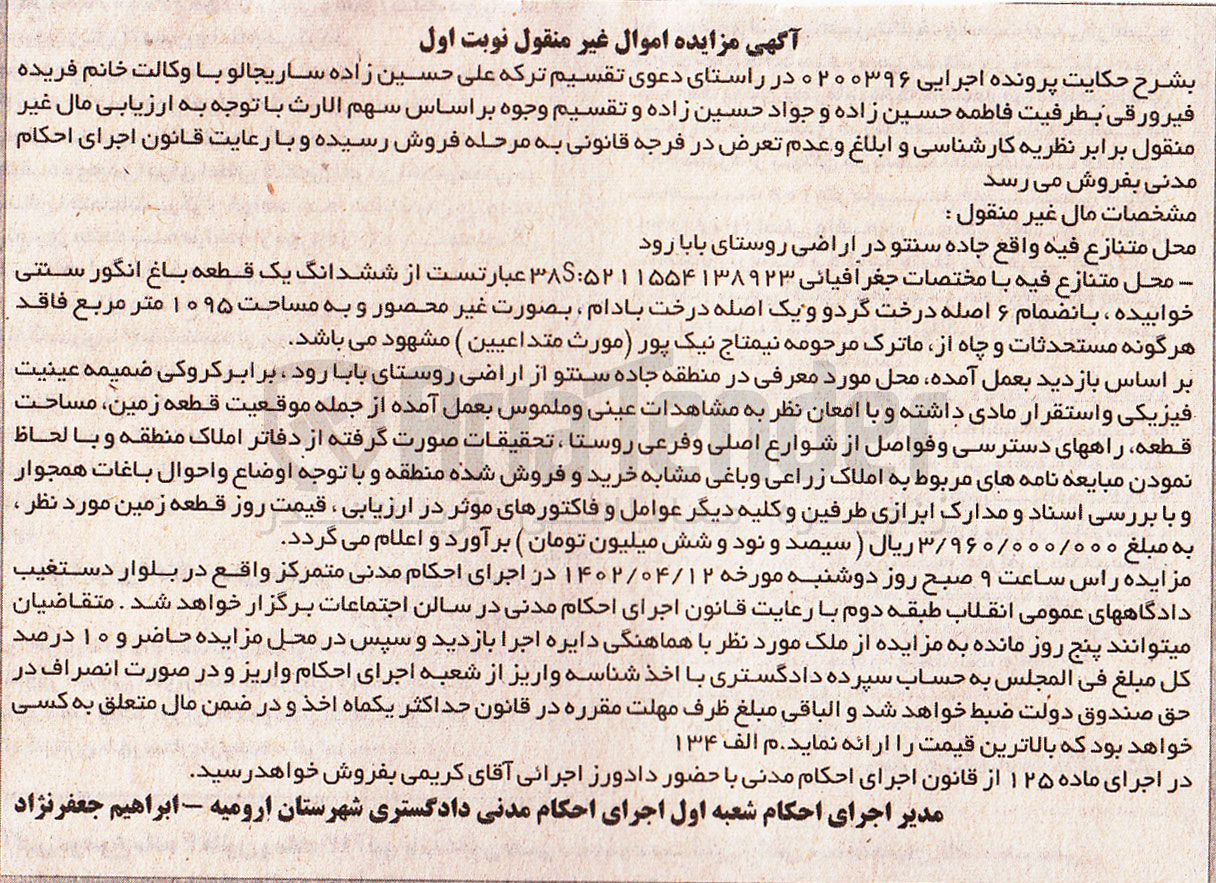 آگهی مزایده اموال غیر منقول نوبت اول
بشرح حکایت پرونده اجرایی ۰۲۰۰۳۹۶ در راستای دعوی تقسیم ترکه علی حسین زاده ساریجالو با وکالت خانم فریده
فیرورقی بطرفیت فاطمه حسین زاده و جواد حسین زاده و تقسیم وجوه بر اساس سهم الارث با توجه به ارزیابی مال غیر
منقول برابر نظریه کارشناسی و ابلاغ و عدم تعرض در فرجه قانونی به مرحله فروش رسیده و با رعایت قانون اجرای احکام
مدنی بفروش می رسد
مشخصات مال غیر منقول :
محل متنازع فیه واقع جاده سنتو در اراضی روستای بابا رود
– محل متنازع فیه با مختصات جغرافیائی ۳۸S:۵۲۱۱۵۵۴۱۳۸۹۲۳ عبارتست از ششدانگ یک قطعه باغ انگور سنتی
خوابیده ، بانضمام ۶ اصله درخت گردو و یک اصله درخت بادام ، بصورت غیر محصور و به مساحت ۱۰۹۵ متر مربع فاقد
هرگونه مستحدثات و چاه از، ماترک مرحومه نیمتاج نیک پور (مورث متداعیین ) مشهود می باشد.
بر اساس بازدید بعمل آمده، محل مورد معرفی در منطقه جاده سنتو از اراضی روستای بابا رود ، برابر کروکی ضمیمه عینیت
فیزیکی و استقرار مادی داشته و با امعان نظر به مشاهدات عینی وملموس بعمل آمده از جمله موقعیت قطعه زمین، مساحت
قطعه، راههای دسترسی وفواصل از شوارع اصلی وفرعی روستا ، تحقیقات صورت گرفته از دفاتر املاک منطقه و با لحاظ
نمودن مبایعه نامه های مربوط به املاک زراعی وباغی مشابه خرید و فروش شده منطقه و با توجه اوضاع واحوال باغات همجوار
و با بررسی اسناد و مدارک ابرازی طرفین و کلیه دیگر عوامل و فاکتورهای موثر در ارزیابی ، قیمت روز قطعه زمین مورد نظر ،
به مبلغ ۳/۹۶۰/۰۰۰/۰۰۰ ریال ( سیصد و نود و شش میلیون تومان ) برآورد و اعلام می گردد.
مزایده راس ساعت ۹ صبح روز دوشنبه مورخه ۱۴۰۲/۰۴/۱۲ در اجرای احکام مدنی متمرکز واقع در بلوار دستغیب
دادگاههای عمومی انقلاب طبقه دوم با رعایت قانون اجرای احکام مدنی در سالن اجتماعات برگزار خواهد شد . متقاضیان
میتوانند پنج روز مانده به مزایده از ملک مورد نظر با هماهنگی دایره اجرا بازدید و سپس در محل مزایده حاضر و ۱۰ درصد
کل مبلغ فی المجلس به حساب سپرده دادگستری با اخذ شناسه واریز از شعبه اجرای احکام واریز و در صورت انصراف در
حق صندوق دولت ضبط خواهد شد و الباقی مبلغ ظرف مهلت مقرره در قانون حداکثر یکماه اخذ و در ضمن مال متعلق به کسی
خواهد بود که بالاترین قیمت را ارائه نماید.م الف ۱۳۴
در اجرای ماده ۱۲۵ از قانون اجرای احکام مدنی با حضور دادورز اجرائی آقای کریمی بفروش خواهدرسید.
مدیر اجرای احکام شعبه اول اجرای احکام مدنی دادگستری شهرستان ارومیه – ابراهیم جعفرنژاد